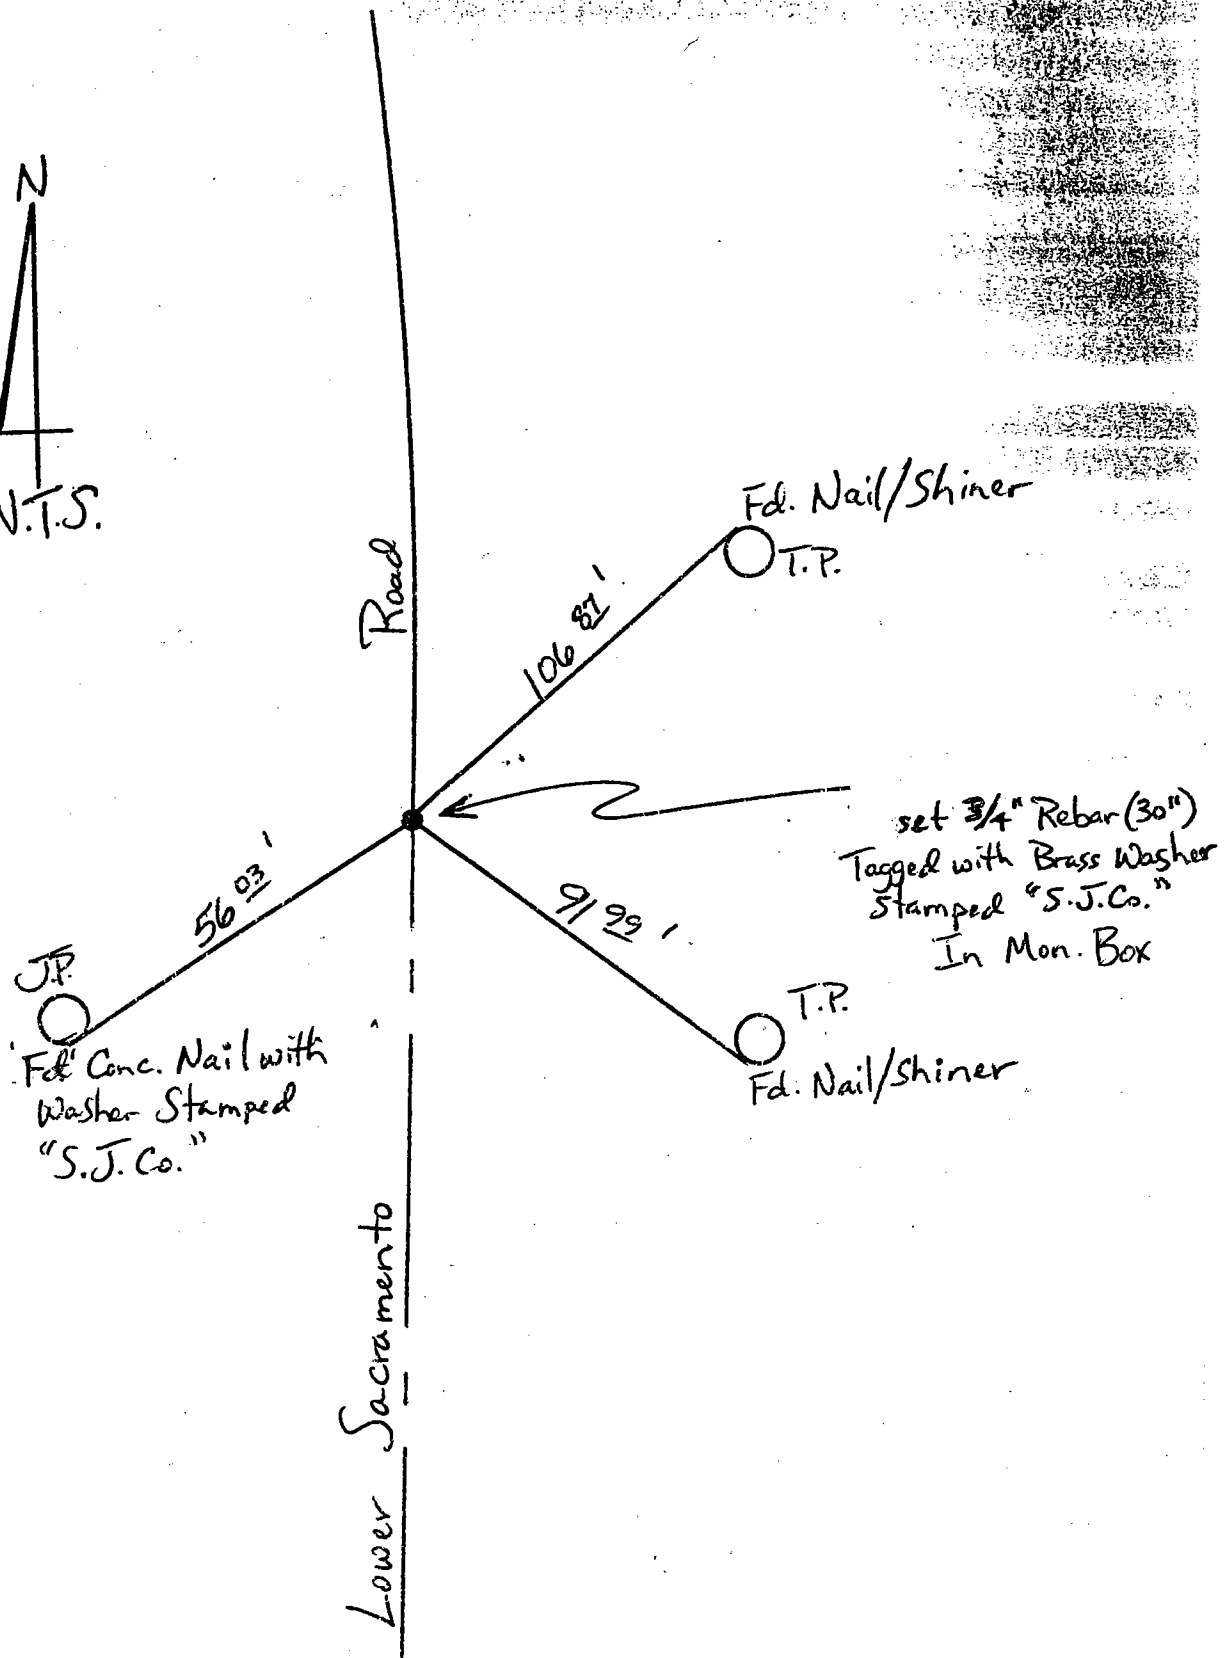 N
N.T.S.
Fd. Nail/Shiner
T.P.
Road
106 87'
set 3/4" Rebar (30")
Tagged with Brass Washer
Stamped "S.J.Co."
In Mon. Box
56 03'
91 99'
J.P.
Fd. Conc. Nail with
Washer Stamped
"S.J. Co."
T.P.
Fd. Nail/Shiner
Lower Sacramento